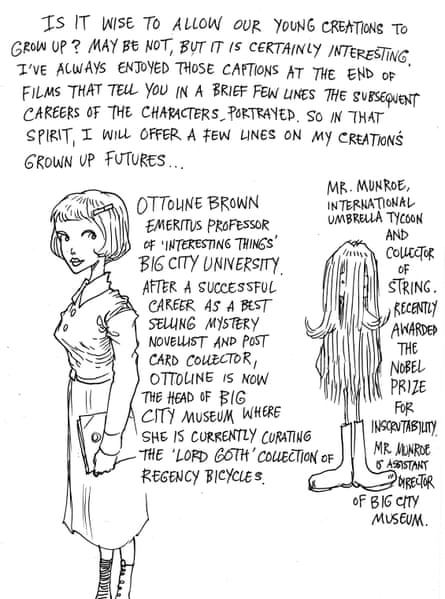 IS IT WISE TO ALLOW OUR YOUNG CREATIONS TO
GROW UP? MAY BE NOT, BUT IT IS CERTAINLY INTERESTING.
I'VE ALWAYS ENJOYED THOSE CAPTIONS AT THE END OF
FILMS THAT TELL YOU IN A BRIEF FEW LINES THE SUBSEQUENT
CAREERS OF THE CHARACTERS PORTRAYED. SO IN THAT
SPIRIT, I WILL OFFER A FEW LINES ON MY CREATIONS
GROWN UP FUTURES...
OTTOLINE BROWN
EMERITUS PROFESSOR
OF 'INTERESTING THINGS'
BIG CITY UNIVERSITY.
AFTER A SUCCESSFUL
CAREER AS A BEST
SELLING MYSTERY
NOVELLIST AND POST
CARD COLLECTOR,
OTTOLINE IS NOW
THE HEAD OF BIG
CITY MUSEUM WHERE
SHE IS CURRENTLY CURATING
THE 'LORD GOTH' COLLECTION OF
REGENCY BICYCLES.
MR. MUNROE,
INTERNATIONAL
UMBRELLA TYCOON
AND
COLLECTOR
OF
STRING.
RECENTLY
AWARDED
THE
NOBEL
PRIZE
FOR
INSCRUTABILITY.
MR. MUNROE
IS ASSISTANT
DIRECTOR
OF BIG CITY
MUSEUM.